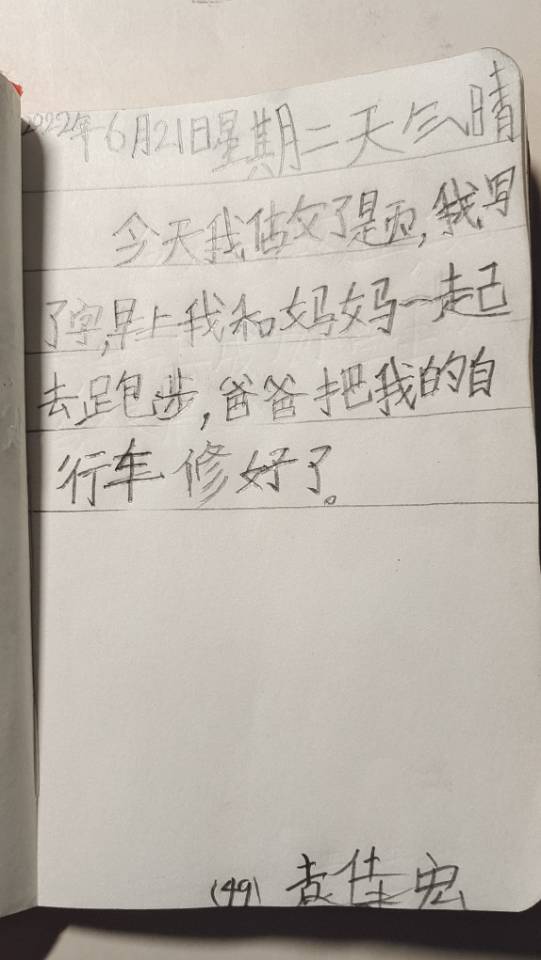 2022年6月21日星期二天气晴
今天我做了是页,我写
了字,早上我和妈妈一起
去跑步,爸爸把我的自
行车修好了。
(49) 袁佳宏